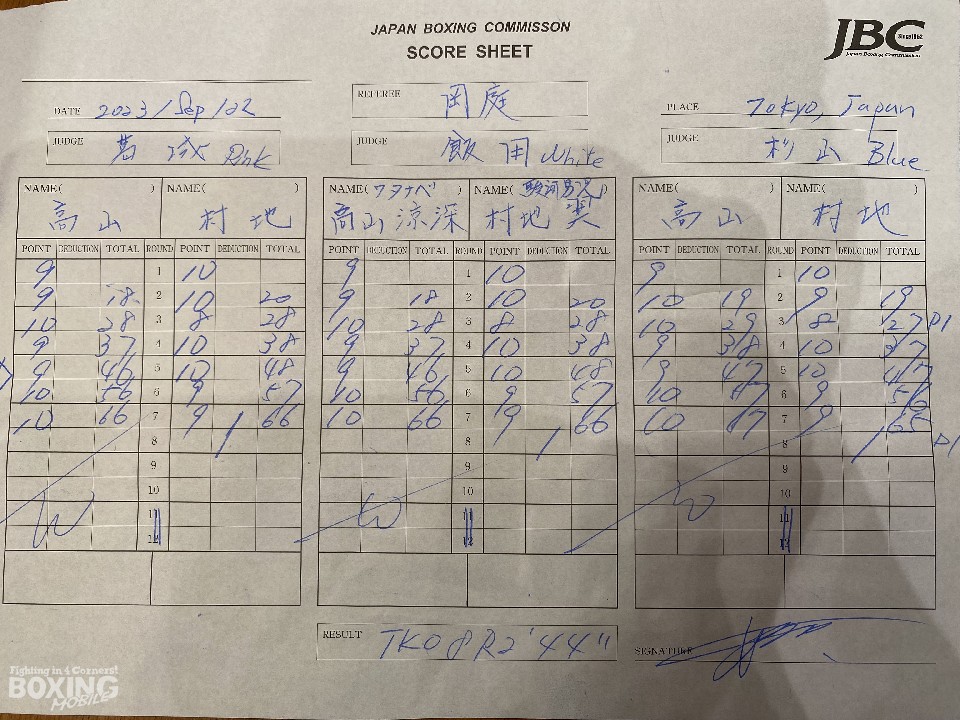 JAPAN BOXING COMMISSON
SCORE SHEET
JBC
Since1952
Japan Boxing Commission
DATE 2023/Sep/22
REFEREE 岡庭
PLACE Tokyo, Japan
JUDGE Pink
JUDGE 飯田 White
JUDGE 杉山 Blue
NAME( ) NAME( )
高山 村地
POINT DEDUCTION TOTAL ROUND POINT DEDUCTION TOTAL
9 1 10
9 18 2 10 20
10 28 3 8 28
9 37 4 10 38
9 46 5 10 48
10 56 6 9 57
10 66 7 9 66
8 1
9
10
11
12
W
NAME(ワタナベ) NAME(駿河男児)
高山涼深 村地翼
POINT DEDUCTION TOTAL ROUND POINT DEDUCTION TOTAL
9 1 10
9 18 2 10 20
10 28 3 8 28
9 37 4 10 38
9 46 5 10 48
10 56 6 9 57
10 66 7 9 66
8 1
9
10
11
12
W
NAME( ) NAME( )
高山 村地
POINT DEDUCTION TOTAL ROUND POINT DEDUCTION TOTAL
9 1 10
10 19 2 9 19
10 29 3 8 27 P1
9 38 4 10 37
9 47 5 10 47
10 6 9 56
10 7 9 65
8 1 P1
9
10
11
12
W
RESULT TKO 8R2'44"
SIGNATURE
Fighting in 4 Corners!
BOXING
MOBILE